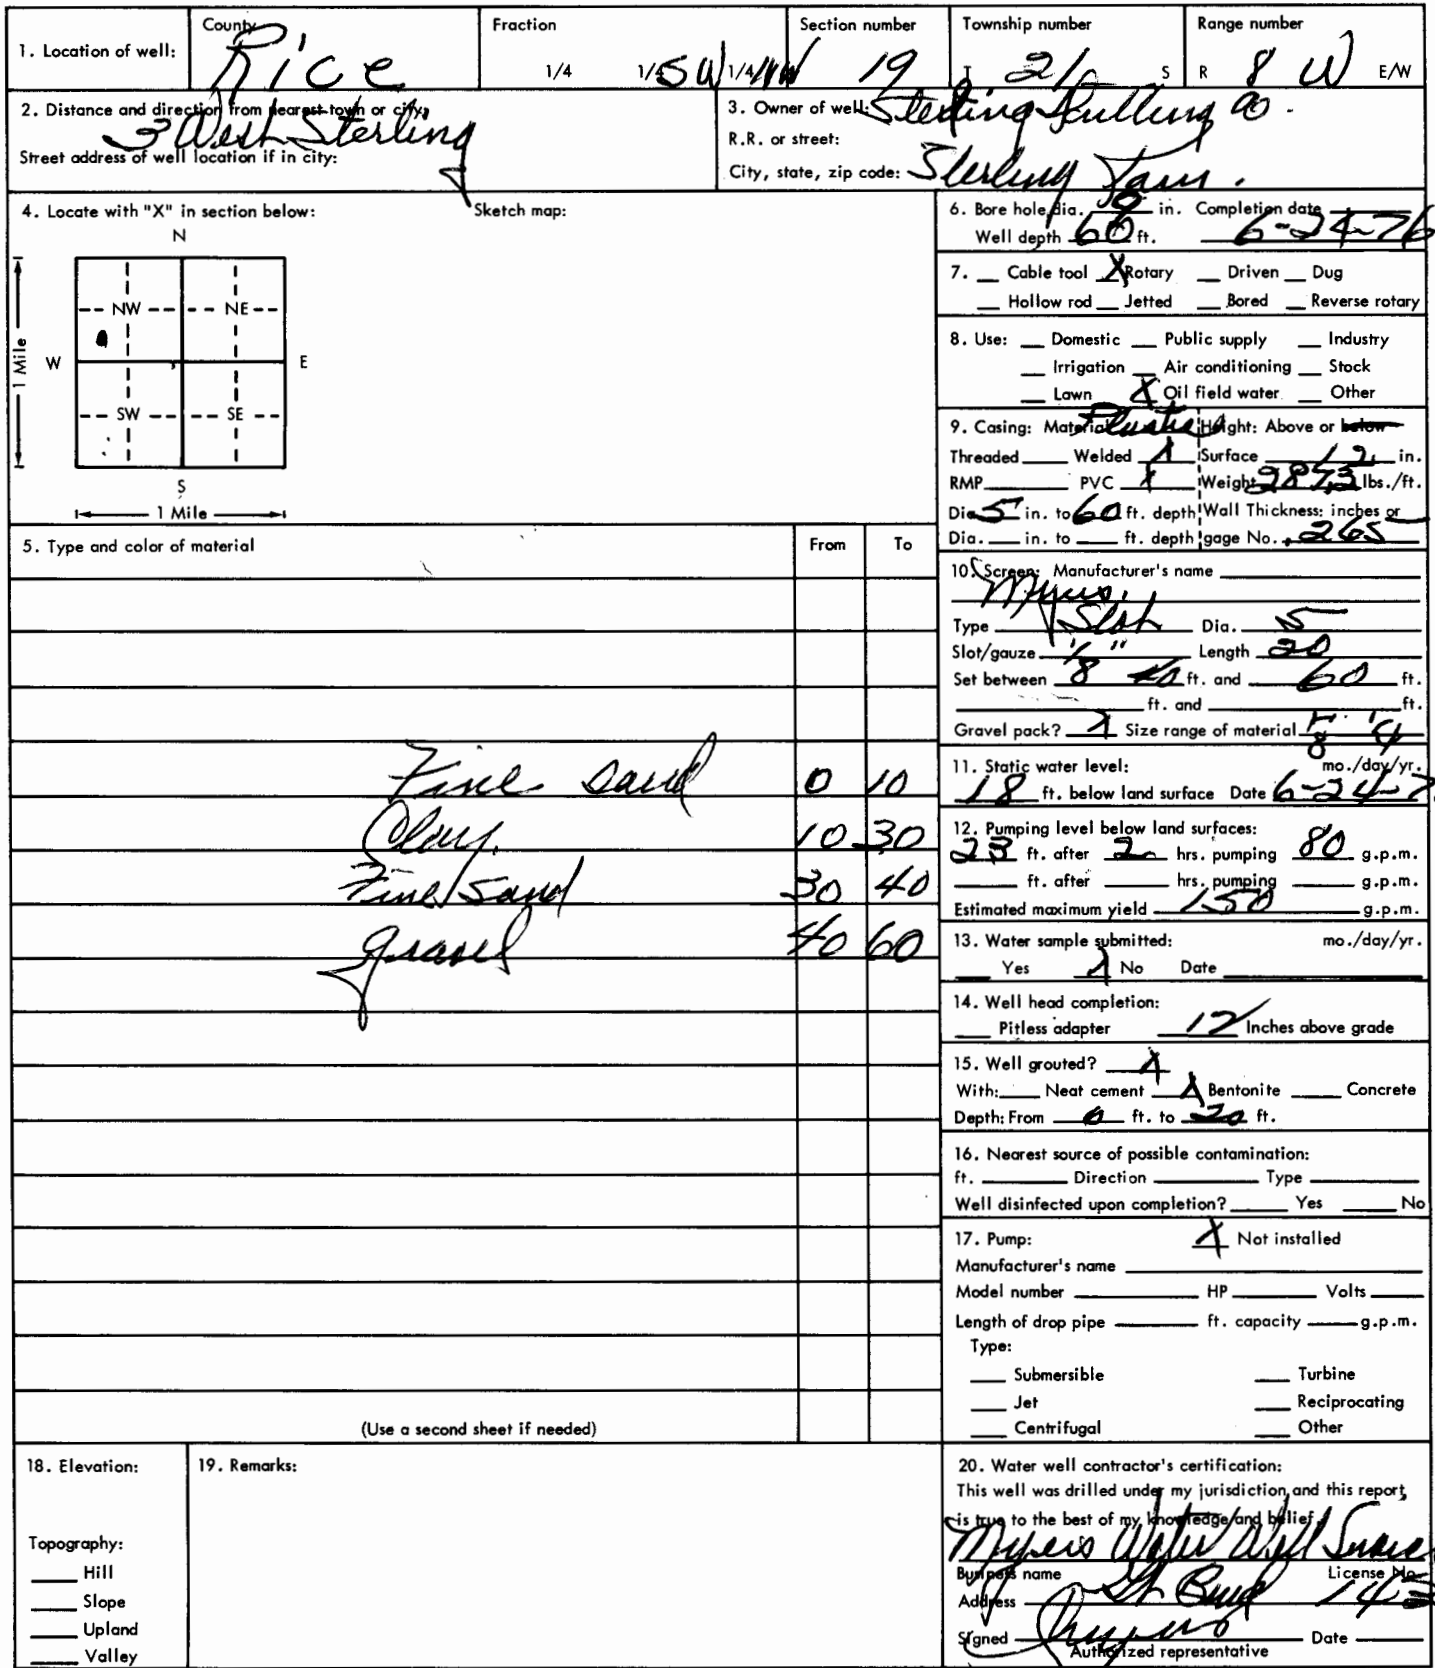 1. Location of well: County Rice Fraction 1/4 1/4 SW 1/4 NW Section number 19 Township number T 21 S Range number R 8 W E/W
2. Distance and direction from nearest town or city: 3 West Sterling
Street address of well location if in city:
3. Owner of well: Sterling Drilling Co.
R.R. or street:
City, state, zip code: Sterling Kans.
4. Locate with "X" in section below: Sketch map:
N
NW NE
W E
SW SE
S
1 Mile
1 Mile
5. Type and color of material From To
Fine sand 0 10
Clay 10 30
Fine Sand 30 40
gravel 40 60
(Use a second sheet if needed)
6. Bore hole dia. 9 in. Completion date
Well depth 60 ft. 6-24-76
7. Cable tool X Rotary Driven Dug
Hollow rod Jetted Bored Reverse rotary
8. Use: Domestic Public supply Industry
Irrigation Air conditioning Stock
Lawn X Oil field water Other
9. Casing: Material Plastic Height: Above or below
Threaded Welded X Surface 12 in.
RMP PVC X Weight lbs./ft.
Dia. 5 in. to 60 ft. depth Wall Thickness: inches or
Dia. in. to ft. depth gage No. .265
10. Screen: Manufacturer's name
Myers
Type Slot Dia. 5
Slot/gauze 1/8" Length 20
Set between 40 ft. and 60 ft.
ft. and ft.
Gravel pack? X Size range of material
11. Static water level: mo./day/yr.
18 ft. below land surface Date 6-24-7
12. Pumping level below land surfaces:
23 ft. after 2 hrs. pumping 80 g.p.m.
ft. after hrs. pumping g.p.m.
Estimated maximum yield 150 g.p.m.
13. Water sample submitted: mo./day/yr.
Yes X No Date
14. Well head completion:
Pitless adapter 12 Inches above grade
15. Well grouted? X
With: Neat cement X Bentonite Concrete
Depth: From 0 ft. to 20 ft.
16. Nearest source of possible contamination:
ft. Direction Type
Well disinfected upon completion? Yes No
17. Pump: X Not installed
Manufacturer's name
Model number HP Volts
Length of drop pipe ft. capacity g.p.m.
Type:
Submersible Turbine
Jet Reciprocating
Centrifugal Other
18. Elevation:
Topography:
Hill
Slope
Upland
Valley
19. Remarks:
20. Water well contractor's certification:
This well was drilled under my jurisdiction and this report
is true to the best of my knowledge and belief.
Myers Water Well Service
Business name License No.
Address Gt Bend 143
Signed Myers Date
Authorized representative